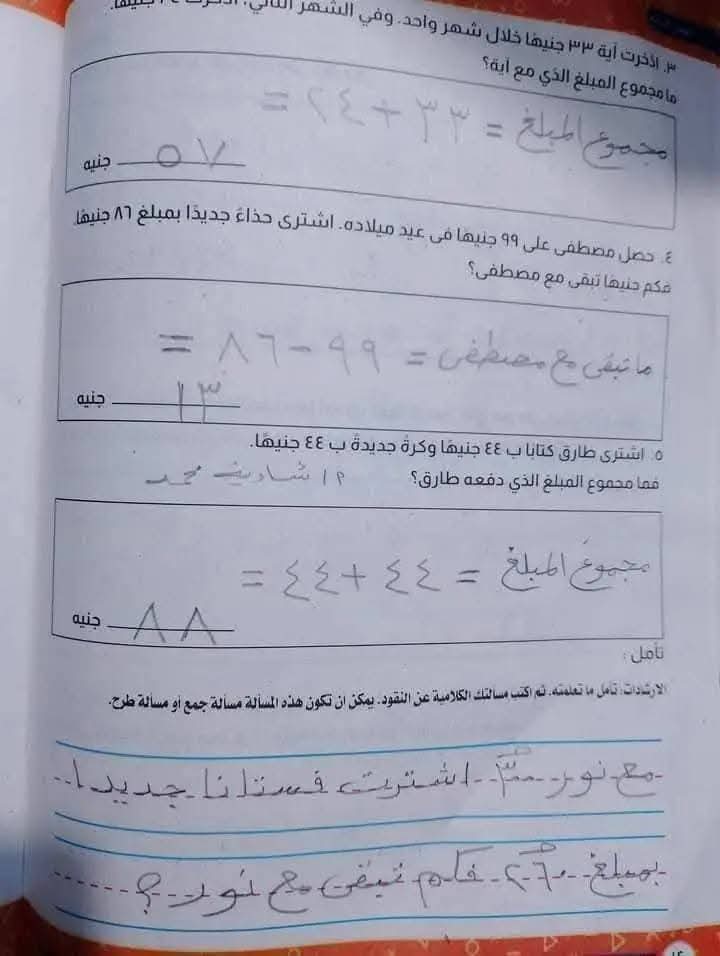 ٣. ادّخرت آية ٣٣ جنيهًا خلال شهر واحد. وفي الشهر الثاني، ادّخرت ٢٤ جنيهًا.
ما مجموع المبلغ الذي مع آية؟
مجموع المبلغ = ٣٣ + ٢٤ =
٥٧ جنيه
٤. حصل مصطفى على ٩٩ جنيهًا فى عيد ميلاده. اشترى حذاءً جديدًا بمبلغ ٨٦ جنيهًا.
فكم جنيهًا تبقى مع مصطفى؟
ما تبقى مع مصطفى = ٩٩ - ٨٦ =
١٣ جنيه
٥. اشترى طارق كتابًا ب ٤٤ جنيهًا وكرةً جديدةً ب ٤٤ جنيهًا.
فما مجموع المبلغ الذي دفعه طارق؟
مجموع المبلغ = ٤٤ + ٤٤ =
٨٨ جنيه
تأمل :
الإرشادات: تأمل ما تعلمته. ثم اكتب مسألتك الكلامية عن النقود. يمكن ان تكون هذه المسألة مسألة جمع أو مسألة طرح.
مع نور ٣٠٠ ج اشتريت فستانا جديدا
بمبلغ ٢٦٠ ج فكم تبقى مع نور ؟